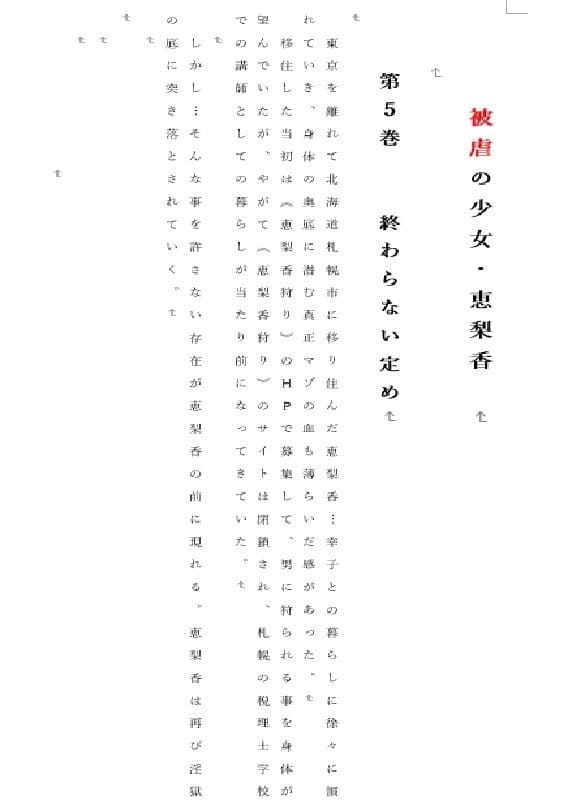 被虐の少女・恵梨香
第5巻　終わらない定め
東京を離れて北海道札幌市に移り住んだ恵梨香…幸子との暮らしに徐々に慣
れていき、身体の奥底に潜む真正マゾの血も薄らいだ感があった。
移住した当初は《恵梨香狩り》のHPで募集して、男に狩られる事を身体が
望んでいたが、やがて《恵梨香狩り》のサイトは閉鎖され、札幌の税理士学校
での講師としての暮らしが当たり前になってきていた。
しかし…そんな事を許さない存在が恵梨香の前に現れる。恵梨香は再び淫獄
の底に突き落とされていく。